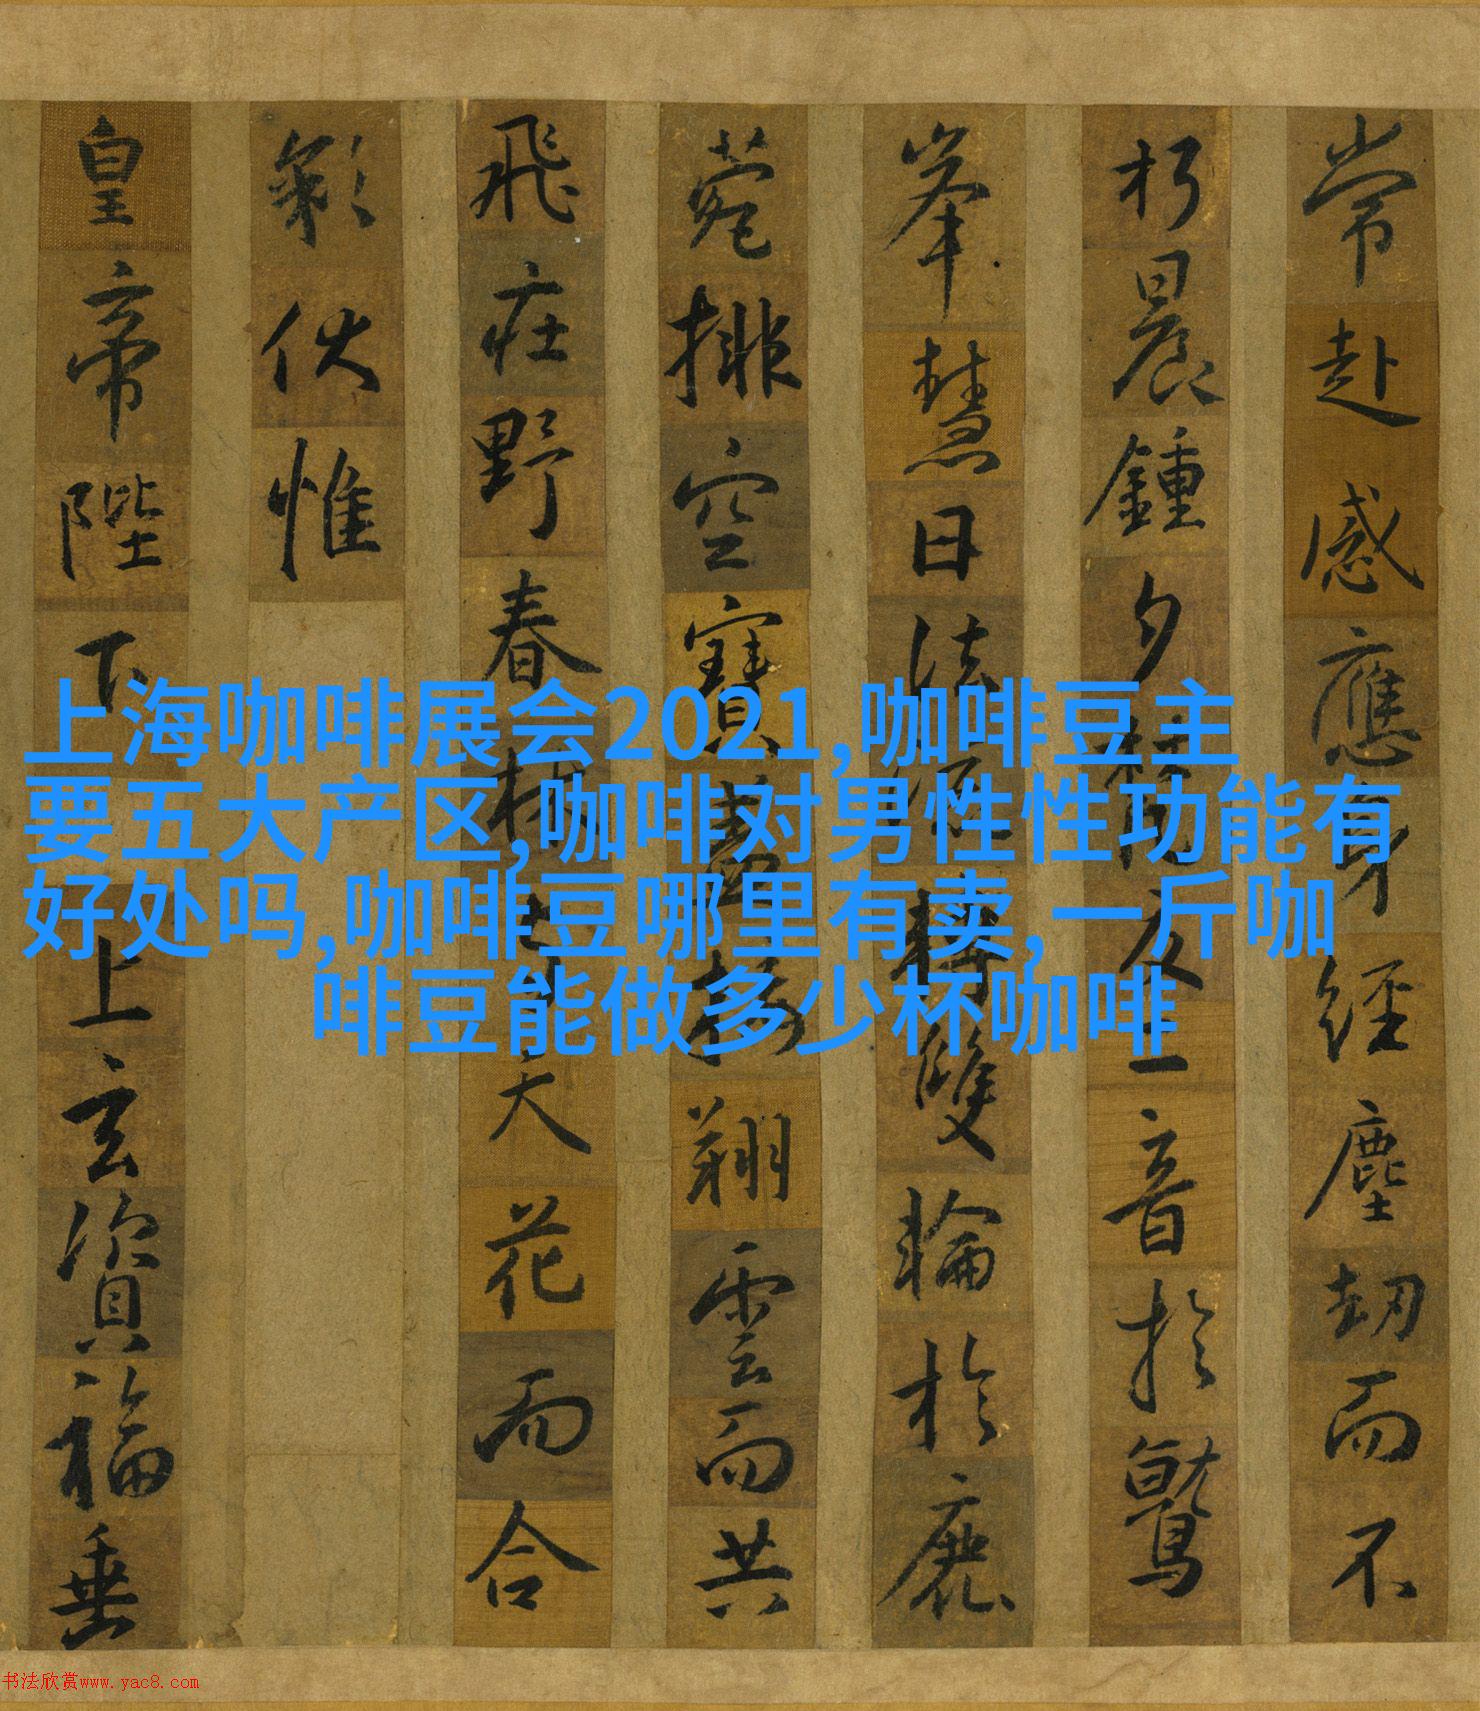 常赴感應身經塵劫而不
朽晨鍾夕梵交二音於鷲
峯慧日法流轉雙輪於鹿
菀排空寶蓋接翔雲而共
飛莊野春林天花而合
彩伏惟
皇帝陛下上玄資福垂
上海咖啡展会2021,咖啡豆主
要五大产区,咖啡对男性性功能有
好处吗,咖啡豆哪里有卖,一斤咖
啡豆能做多少杯咖啡
书法欣赏www.yac8.com